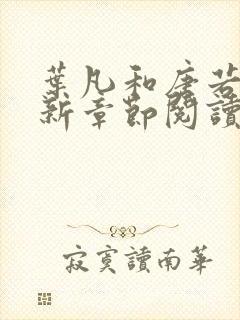 葉凡和唐若
新章節閱讀
寂寞讀南華